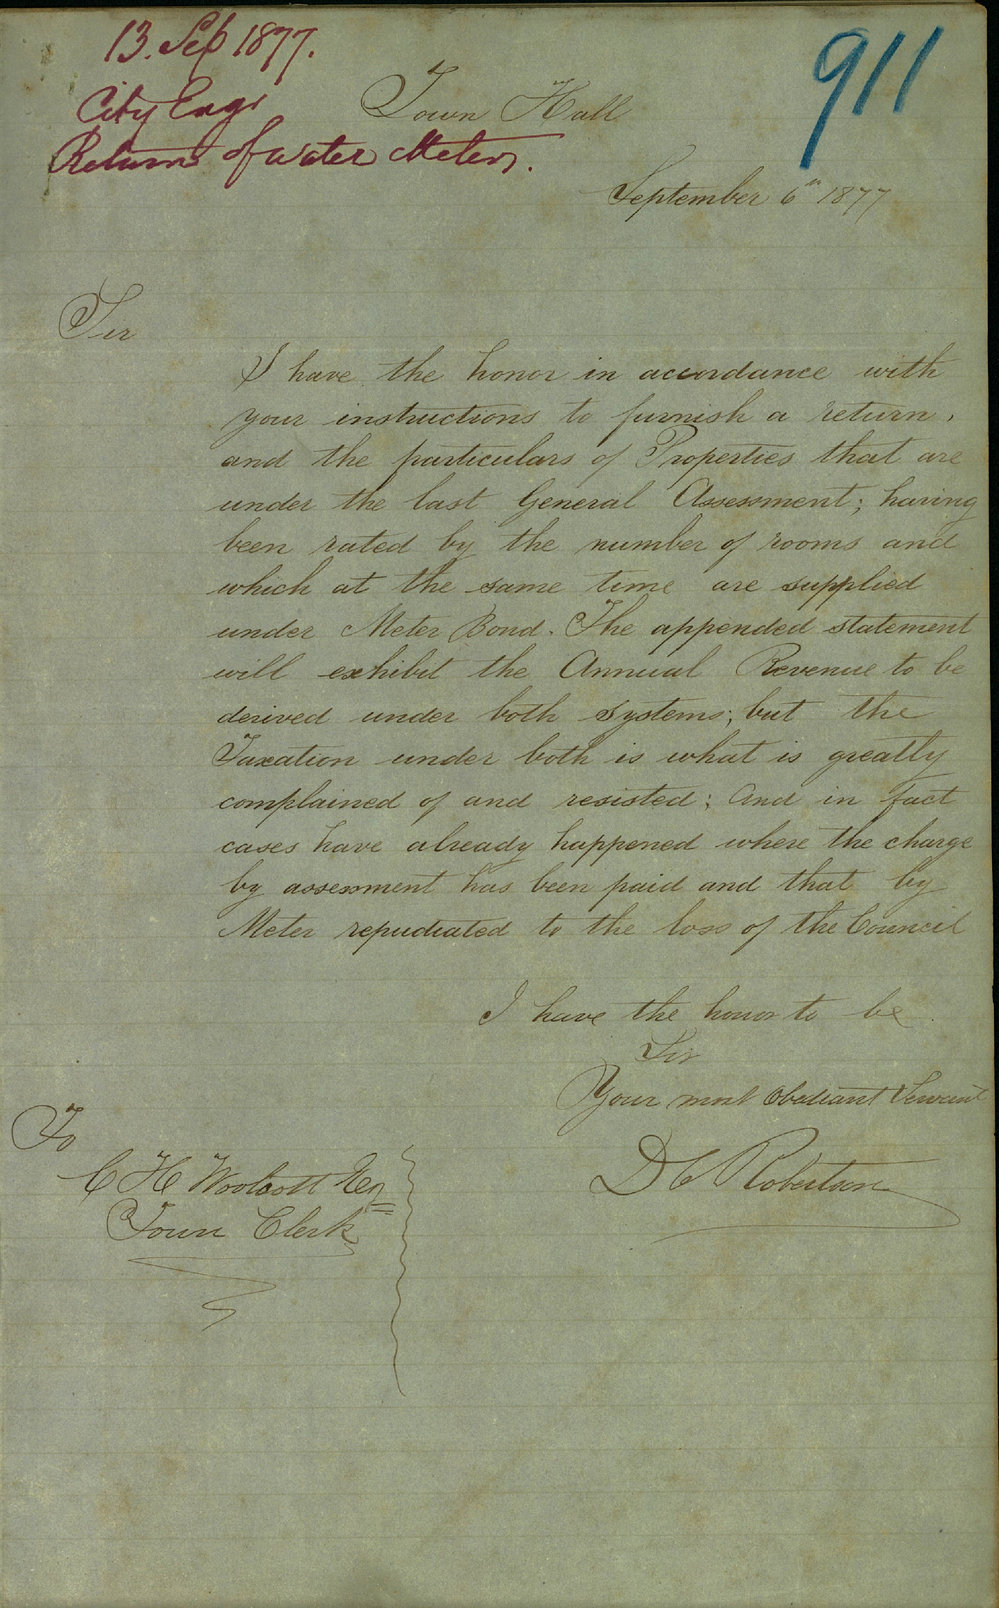 13. Sep 1877.
911
City Engr
Town Hall
Return of Water Meters.
September 6th 1877
Sir
I have the honor in accordance with
your instructions to furnish a return,
and the particulars of Properties that are
under the last General Assessment; having
been rated by the number of rooms and
which at the same time are supplied
under Meter Bond. The appended statement
will exhibit the Annual Revenue to be
derived under both systems; but the
Taxation under both is what is greatly
complained of and resisted; and in fact
cases have already happened where the charge
by assessment has been paid and that by
Meter repudiated to the loss of the Council
I have the honor to be
Sir
Your most obediant Servant
D C Robertson
To
C H Woolcott Esq
Town Clerk